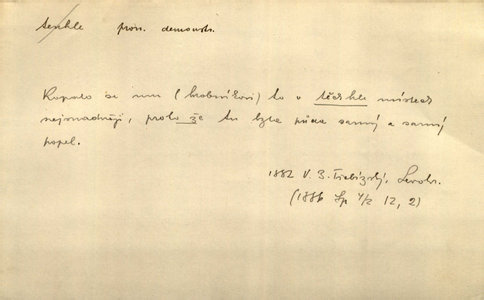 tenhle pron. demonstr.
Kopalo se mu (hrobníkovi) to v těchhle místech
nejsnadněji, proto že tu byla půda samý a samý
popel.
1882 V. B. Třebízský, Levoh.
(1886 Sp 4/2 12, 2)